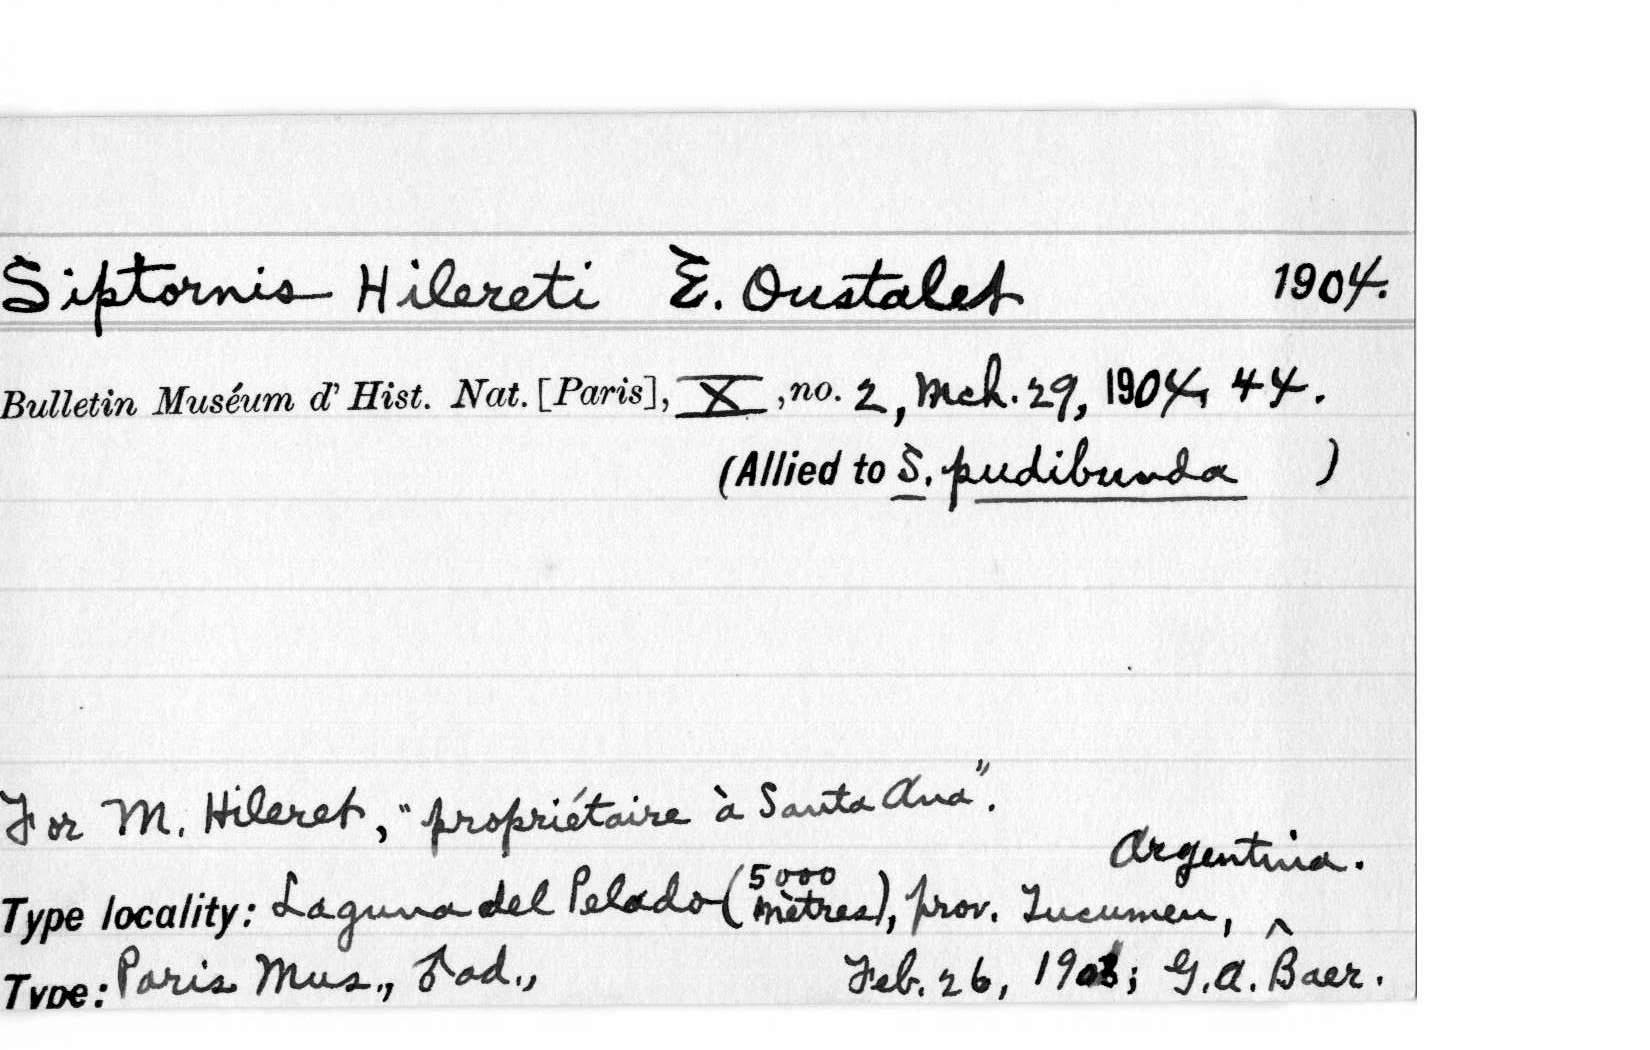 Siptornis Hilereti E. Oustalet 1904.
Bulletin Muséum d' Hist. Nat. [Paris], X, no. 2, Mch. 29, 1904, 44.
(Allied to S. pudibunda )
For M. Hileret, "propriétaire à Santa Ana".
Argentina.
Type locality: Laguna del Pelado (5000 mètres), prov. Tucumen, ^
Type: Paris Mus., ♂ ad., Feb. 26, 1903; G. A. Baer.